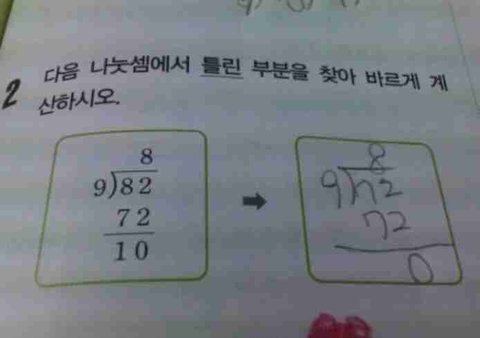 2 다음 나눗셈에서 틀린 부분을 찾아 바르게 계
산하시오.
8
9)82
72
10
➡
8
9)72
72
0